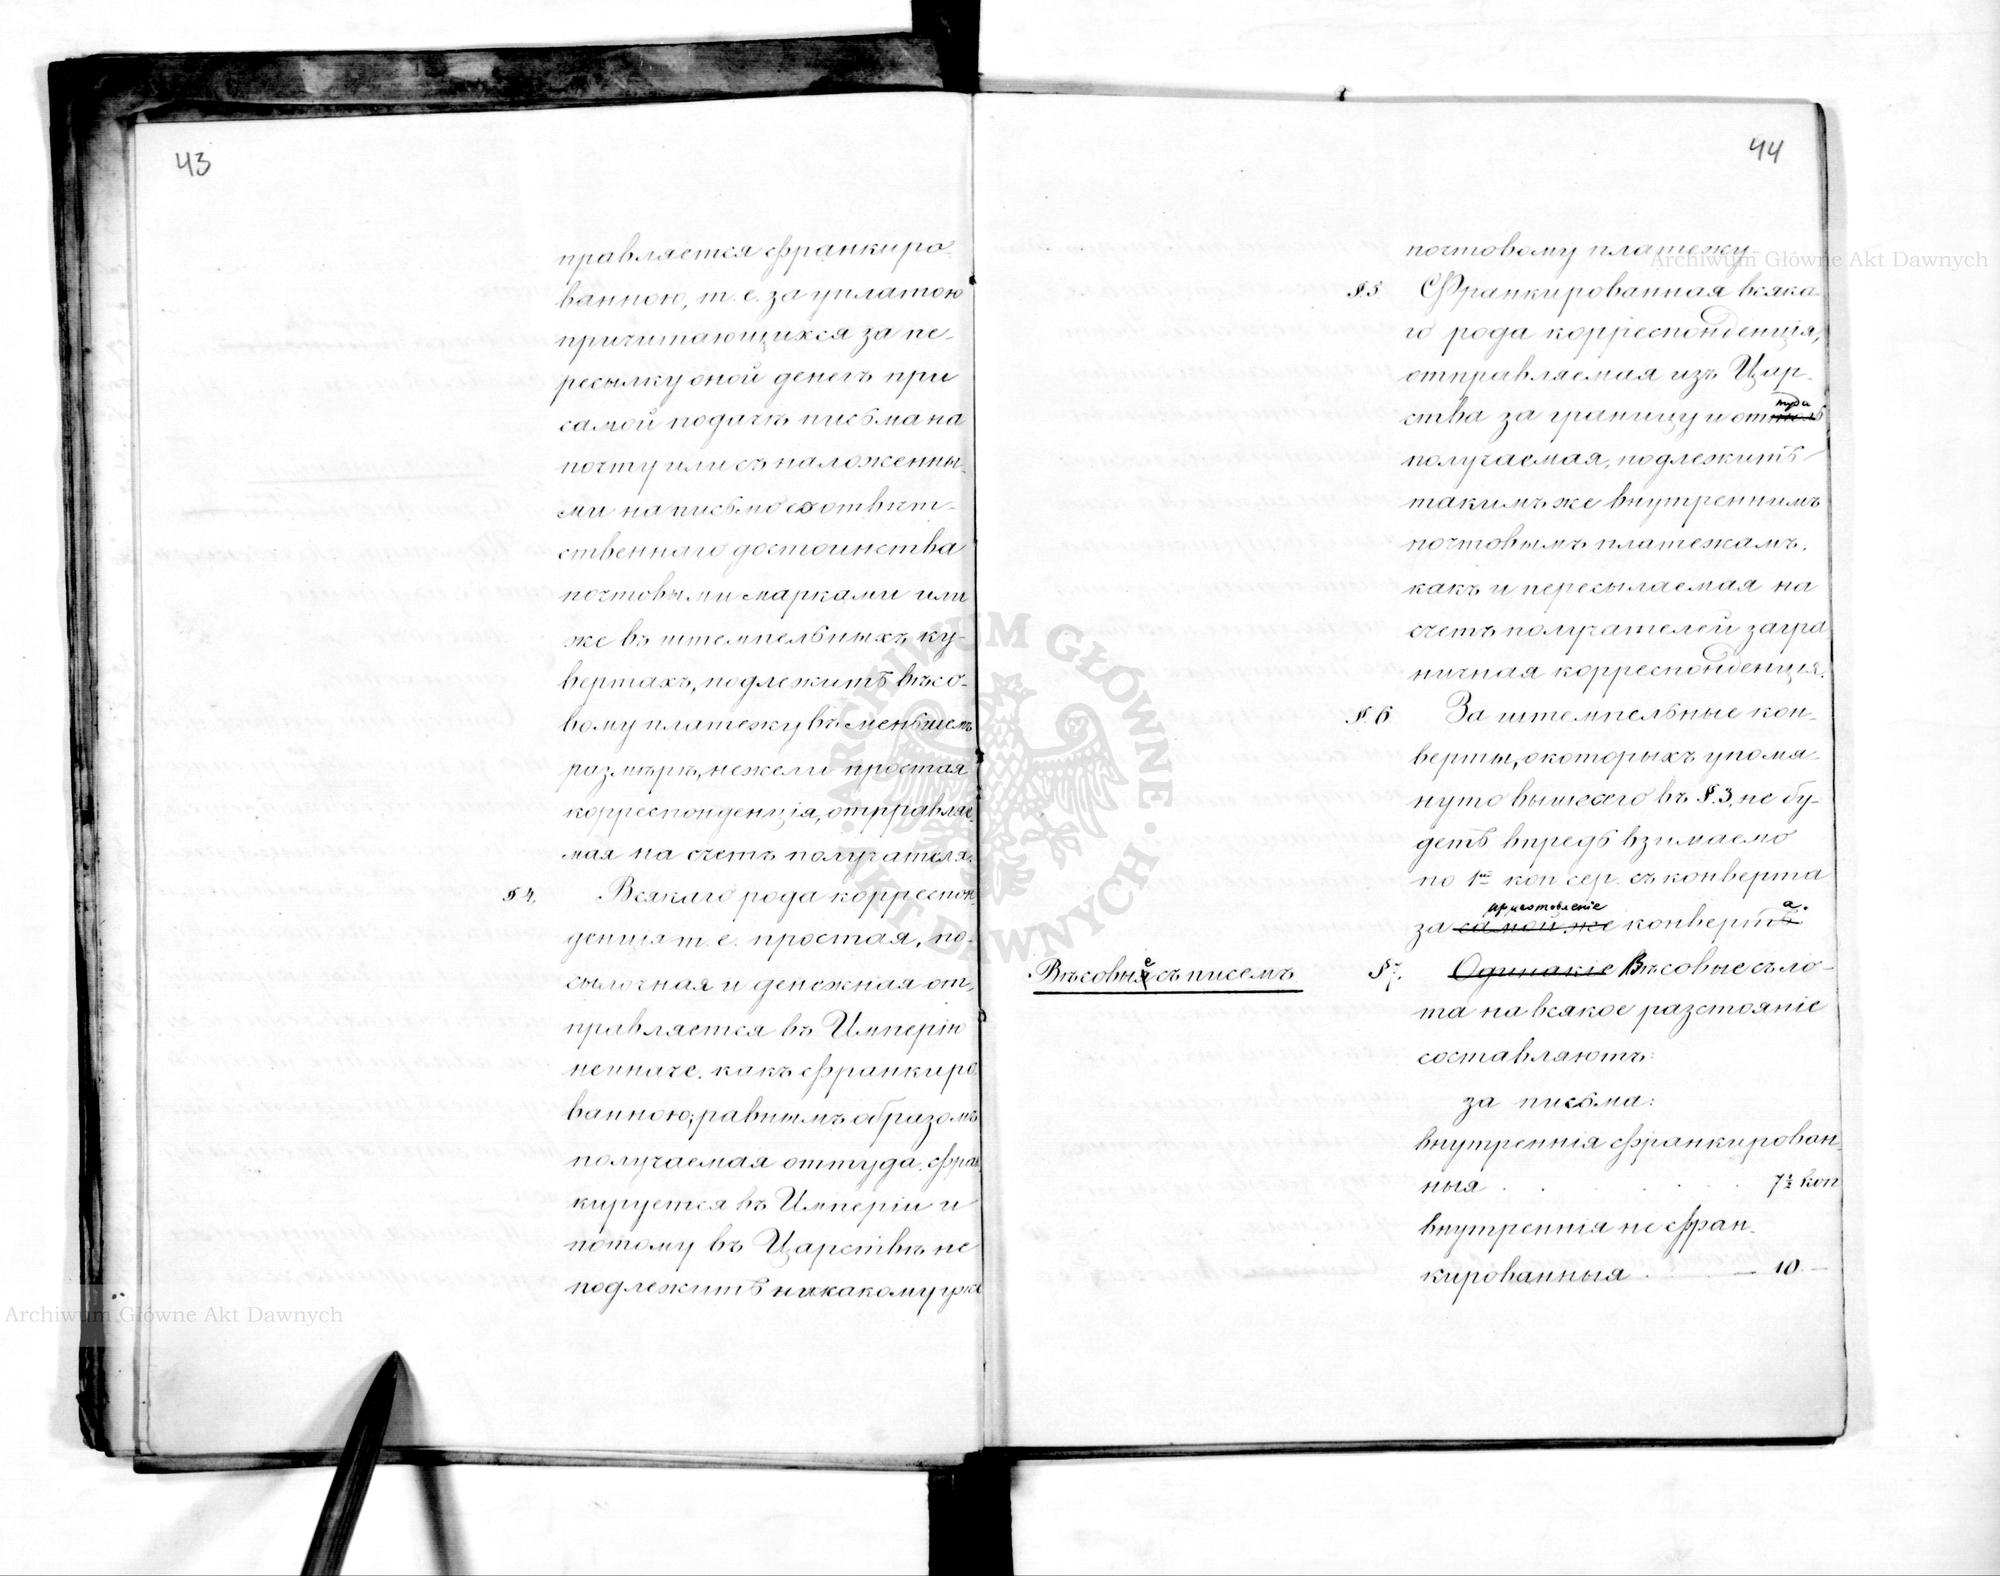 43
правляется франкиро-
ванною, т. е. за уплатою
причитающихся за пе-
ресылку оной денегъ при
самой подачѣ письма на
почту или съ наложенны-
ми на письмо соотвѣт-
ственнаго достоинства
почтовыми марками или
же въ штемпельныхъ ку-
вертахъ, подлежитъ вѣсо-
вому платежу въ меньшемъ
размѣрѣ, нежели простая
корреспонденція, отправляе-
мая на счетъ получателя.
§ 4. Всякаго рода корреспон-
денція т. е. простая, по-
сылочная и денежная от-
правляется въ Имперію
неиначе, какъ франкиро-
ванною; равнымъ образомъ
получаемая оттуда, фран-
кируется въ Имперіи и
потому въ Царствѣ не
подлежитъ никакому уже
44
почтовому платежу
§ 5 Франкированная всяка-
го рода корреспонденція,
отправляемая изъ Цар-
туда
ства за границу и оттоль
получаемая, подлежитъ
такимъ же внутреннимъ
почтовымъ платежамъ,
какъ и пересылаемая на
счетъ получателей загра-
ничная корреспонденція.
§ 6 За штемпельные кон-
верты, о которыхъ упомя-
нуто выше сего въ §. 3, не бу-
детъ впредь взимаемо
по 1ой коп сер. съ конверта
приготовленіе а.
за самой же конвертъ
Вѣсовые съ писемъ § 7. Одинакіе Вѣсовые съ ло-
та на всякое разстояніе
составляютъ:
за письма:
внутреннія франкирован-
ныя . . . . 7½ коп
внутреннія не фран-
кированныя . — 10 —
Archiwum Główne Akt Dawnych
Archiwum Główne Akt Dawnych
ARCHIWUM GŁÓWNE AKT DAWNYCH